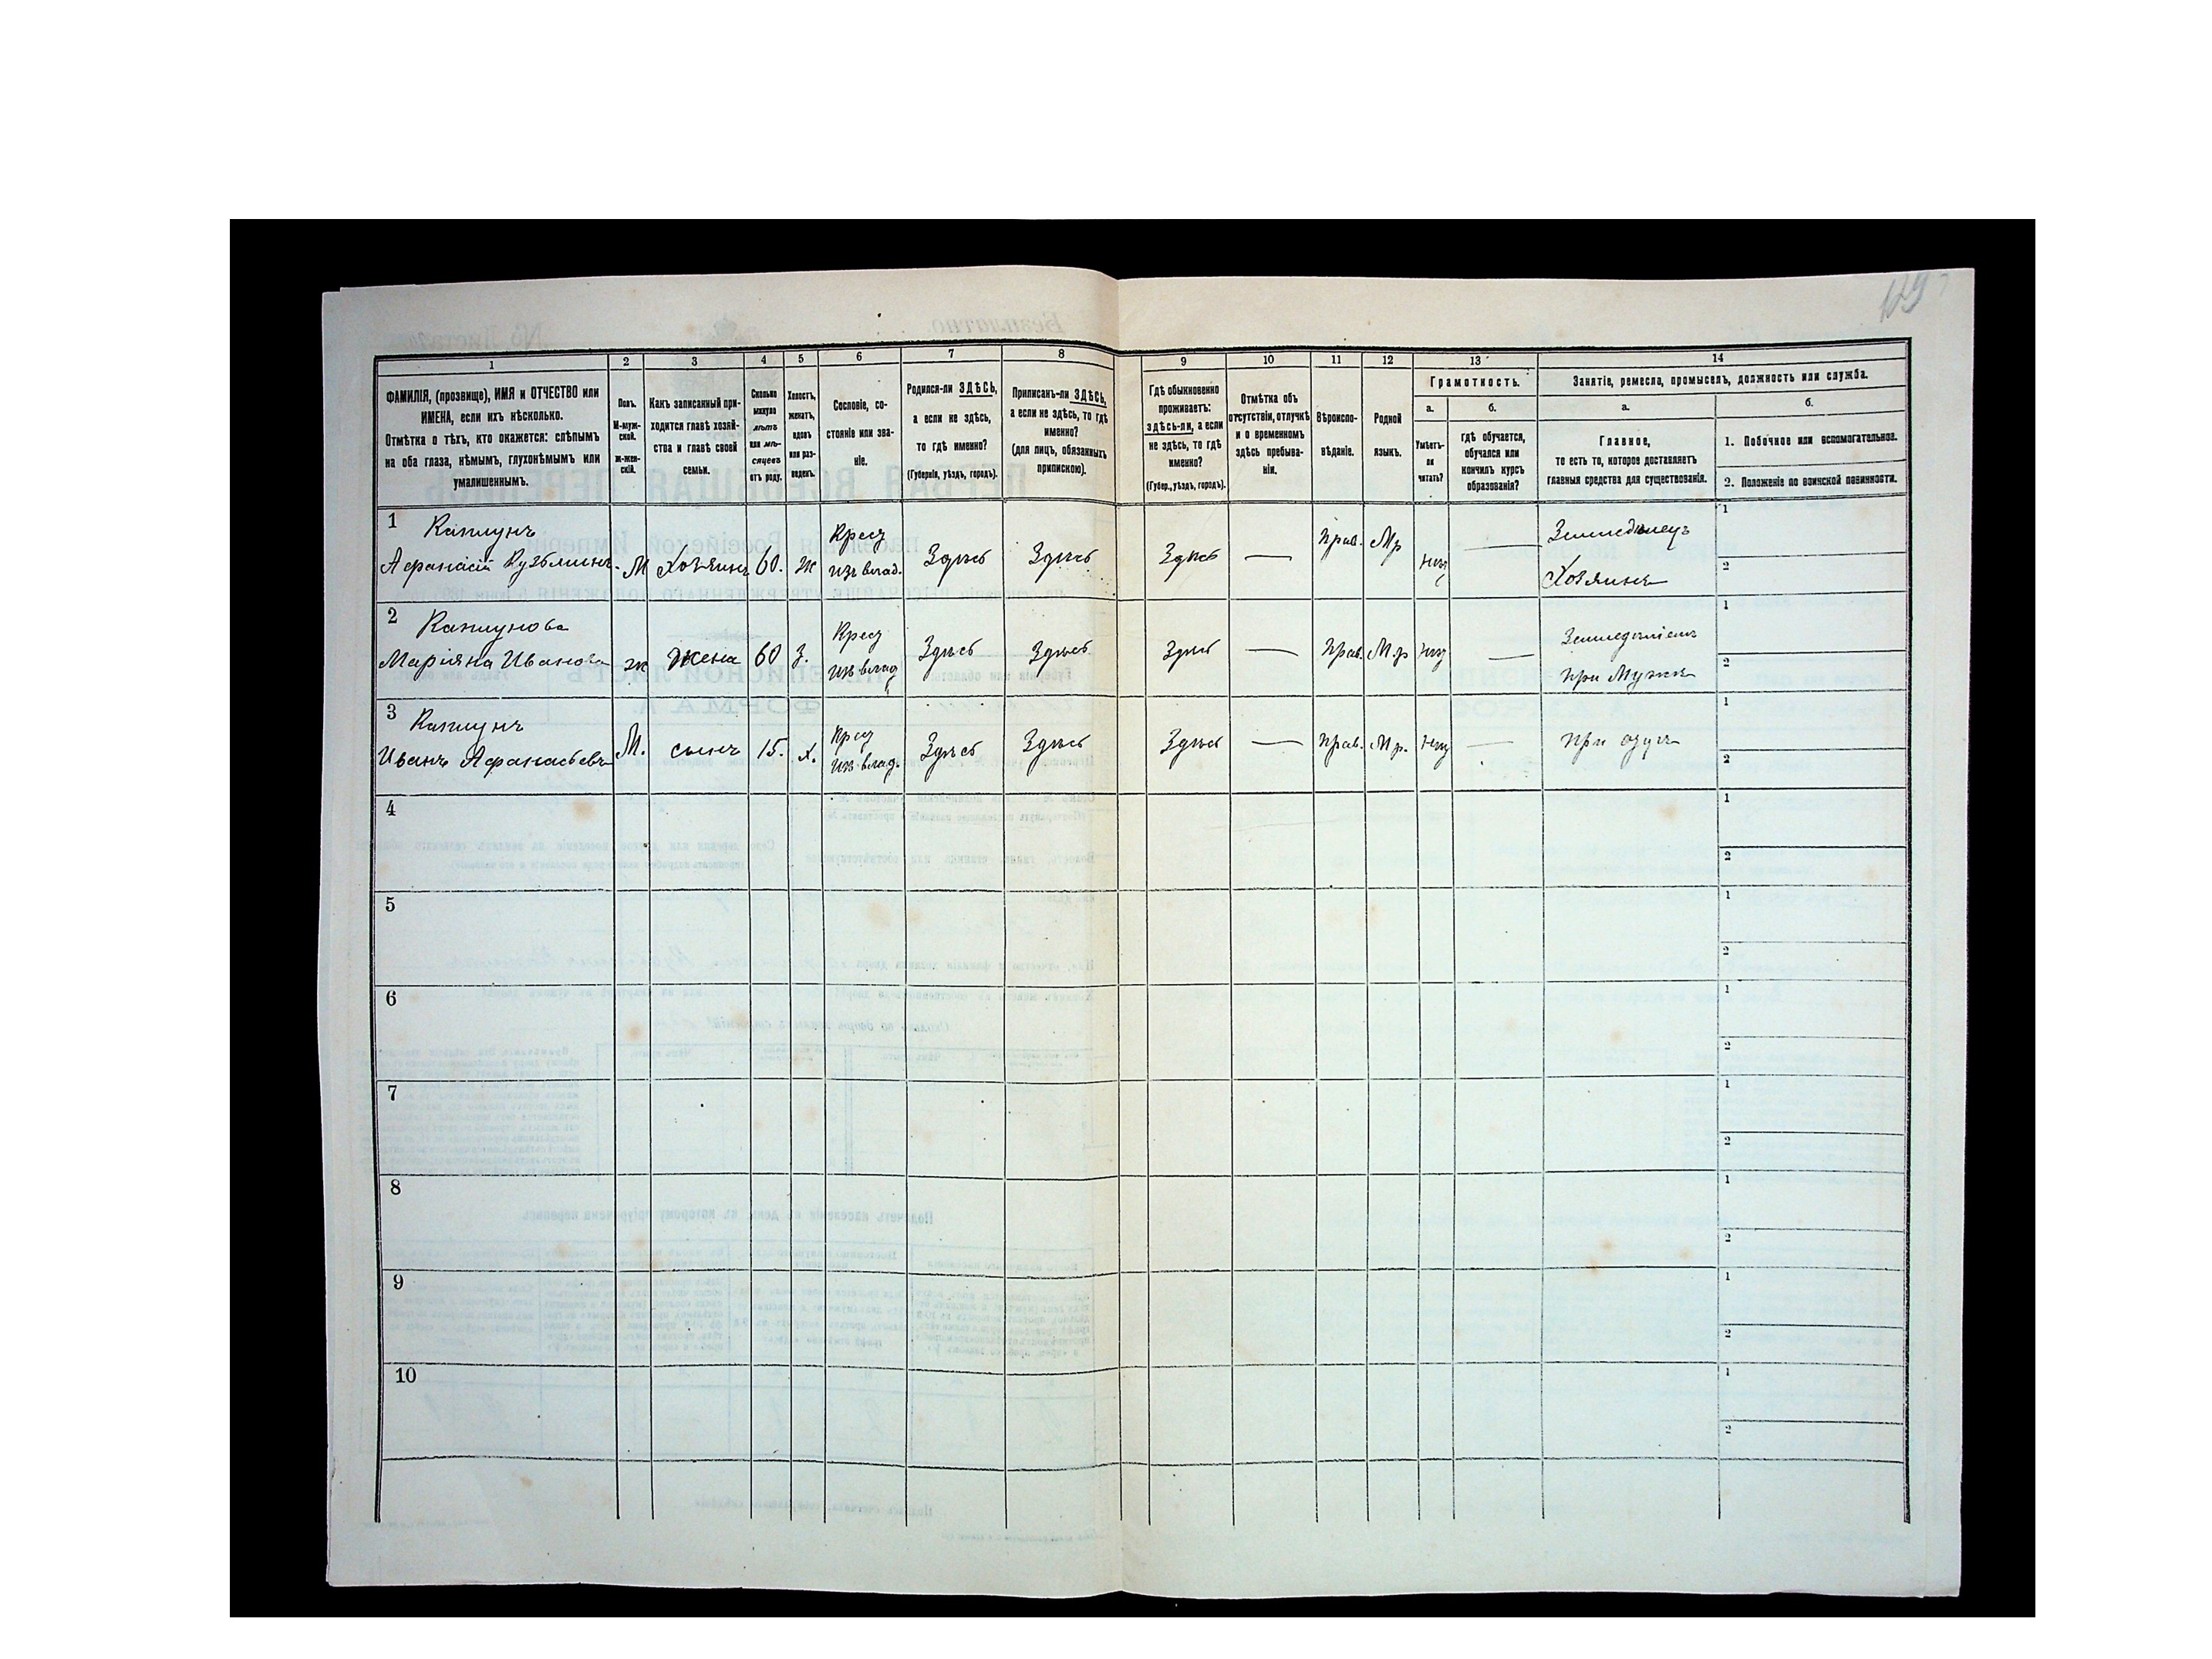 129
1
2
3
4
5
6
7
8
9
10
11
12
13
14
ФАМИЛІЯ, (прозвище), ИМЯ и ОТЧЕСТВО или
ИМЕНА, если ихъ нѣсколько.
Отмѣтка о тѣхъ, кто окажется: слѣпымъ
на оба глаза, нѣмымъ, глухонѣмымъ или
умалишеннымъ.
Полъ.
М-муж-
ской.
ж-жен-
скій.
Какъ записанный при-
ходится главѣ хозяй-
ства и главѣ своей
семьи.
Сколько
минуло
лѣтъ
или мѣ-
сяцевъ
отъ роду.
Холостъ,
женатъ,
вдовъ
или раз-
веденъ.
Сословіе, со-
стояніе или зва-
ніе.
Родился-ли ЗДѢСЬ,
а если не здѣсь,
то гдѣ именно?
(Губернія, уѣздъ, городъ).
Приписанъ-ли ЗДѢСЬ,
а если не здѣсь, то гдѣ
именно?
(для лицъ, обязанныхъ
припискою).
Гдѣ обыкновенно
проживаетъ:
здѣсь-ли, а если
не здѣсь, то гдѣ
именно?
(Губер., уѣздъ, городъ).
Отмѣтка объ
отсутствіи, отлучкѣ
и о временномъ
здѣсь пребыва-
ніи.
Вѣроиспо-
вѣданіе.
Родной
языкъ.
Грамотность.
а.
Умѣетъ-
ли
читать?
б.
гдѣ обучается,
обучался или
кончилъ курсъ
образованія?
Занятіе, ремесло, промыселъ, должность или служба.
а.
Главное,
то есть то, которое доставляетъ
главныя средства для существованія.
б.
1. Побочное или вспомогательное.
2. Положеніе по воинской повинности.
1 Каплунъ
Афанасій Кузьминъ М Хозяинъ 60. ж Крест из влад. Здѣсь Здѣсь Здѣсь — Прав. Мр нѣт — Земледѣлецъ
Хозяинъ
1
2
2 Каплунова
Маріяна Иванова ж Жена 60 з. Крест из влад Здѣсь Здѣсь Здѣсь — Прав. М.р нѣт — Земледѣліемъ
при Мужѣ
1
2
3 Каплунъ
Иванъ Афанасьевъ М. сынъ 15. х. Крест из влад. Здѣсь Здѣсь Здѣсь — Прав. Мр. нѣт — при отцѣ
1
2
4
1
2
5
1
2
6
1
2
7
1
2
8
1
2
9
1
2
10
1
2